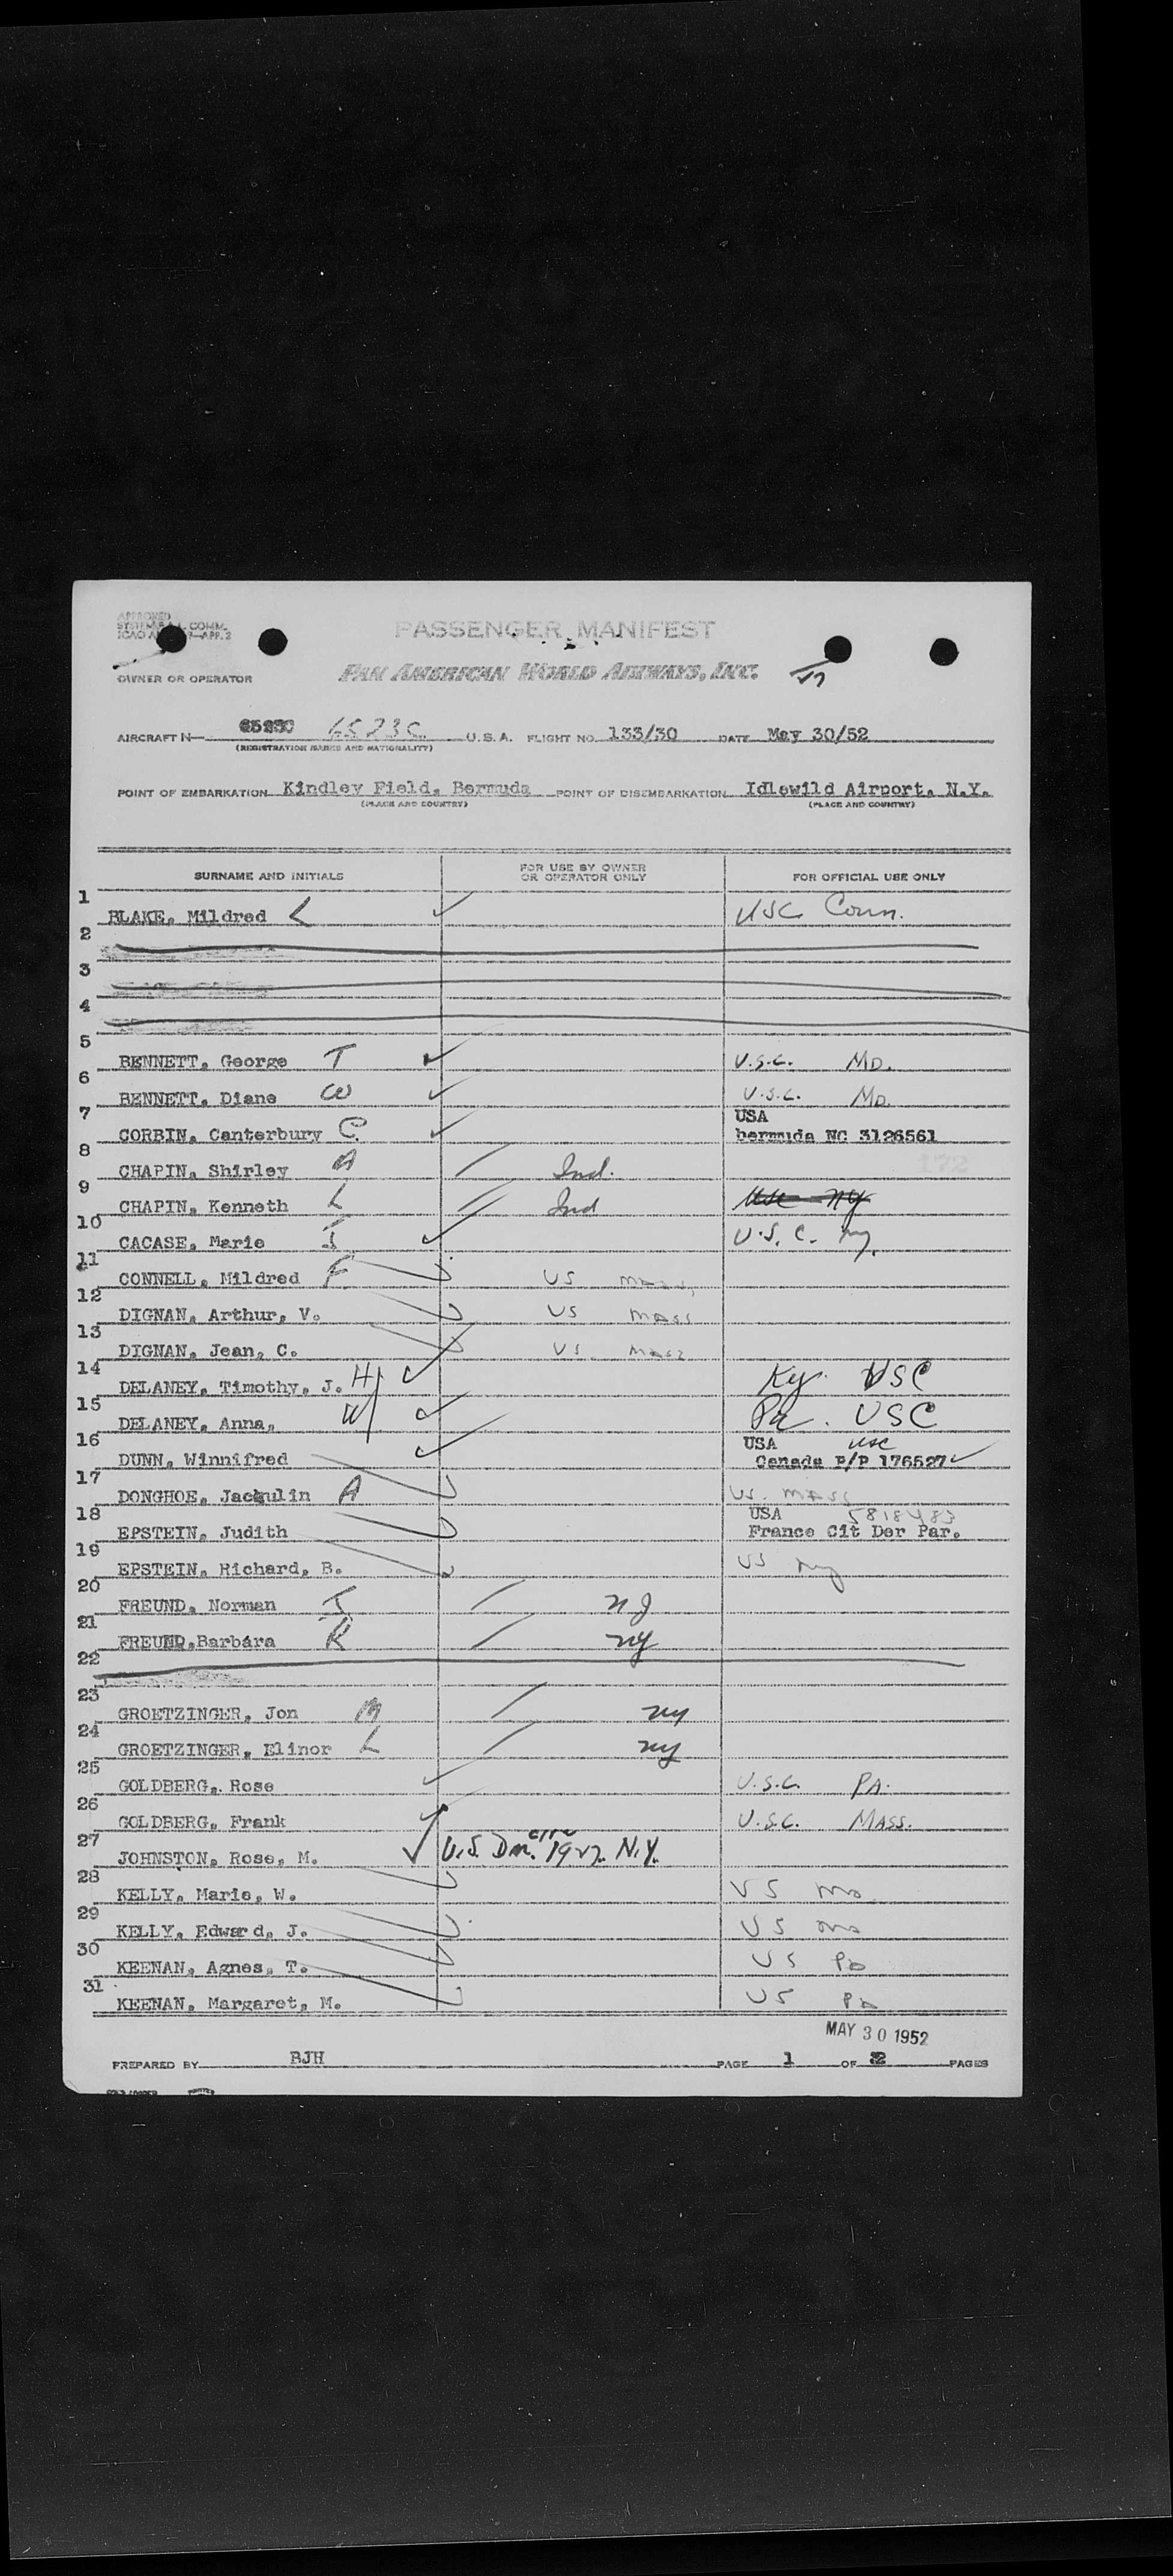 APPROVED
SYSTEMS A.L. COMM.
ICAO 9—APP. 2
PASSENGER MANIFEST
PAN AMERICAN WORLD AIRWAYS, INC.
OWNER OR OPERATOR
AIRCRAFT N— U.S.A. FLIGHT NO. 133/30 DATE May 30/52
(REGISTRATION MARKS AND NATIONALITY)
POINT OF EMBARKATION Kindley Field, Bermuda POINT OF DISEMBARKATION Idlewild Airport, N.Y.
(PLACE AND COUNTRY) (PLACE AND COUNTRY)
SURNAME AND INITIALS FOR USE BY OWNER OR OPERATOR ONLY FOR OFFICIAL USE ONLY
1 BLAKE, Mildred L USC Conn.
2
3
4
5 BENNETT, George T U.S.C. MD.
6 BENNETT, Diane W U.S.C. MD.
7 CORBIN, Canterbury C USA bermuda NC 3126561
172
8 CHAPIN, Shirley A Ind.
9 CHAPIN, Kenneth L Ind
10 CACASE, Marie I U.S.C. ny.
11 CONNELL, Mildred F US mass.
12 DIGNAN, Arthur, V. US mass
13 DIGNAN, Jean, C. US mass
14 DELANEY, Timothy, J. H Ky. USC
15 DELANEY, Anna, W Pa. USC
16 DUNN, Winnifred USA usc Canada P/P 176527
17 DONGHOE, Jacqulin A US. mass
18 EPSTEIN, Judith USA 5818483 France Cit Der Par.
19 EPSTEIN, Richard, B. US ny
20 FREUND, Norman J nJ
21 FREUND,Barbara R ny
22
23 GROETZINGER, Jon M ny
24 GROETZINGER, Elinor L ny
25 GOLDBERG, Rose U.S.C. PA.
26 GOLDBERG, Frank U.S.C. MASS.
27 JOHNSTON, Rose, M. U.S. 1927. N.Y.
28 KELLY, Marie, W. US mo
29 KELLY, Edward, J. US mo
30 KEENAN, Agnes, T. US Pa
31 KEENAN, Margaret, M. US Pa
MAY 30 1952
PREPARED BY BJH PAGE 1 OF 2 PAGES